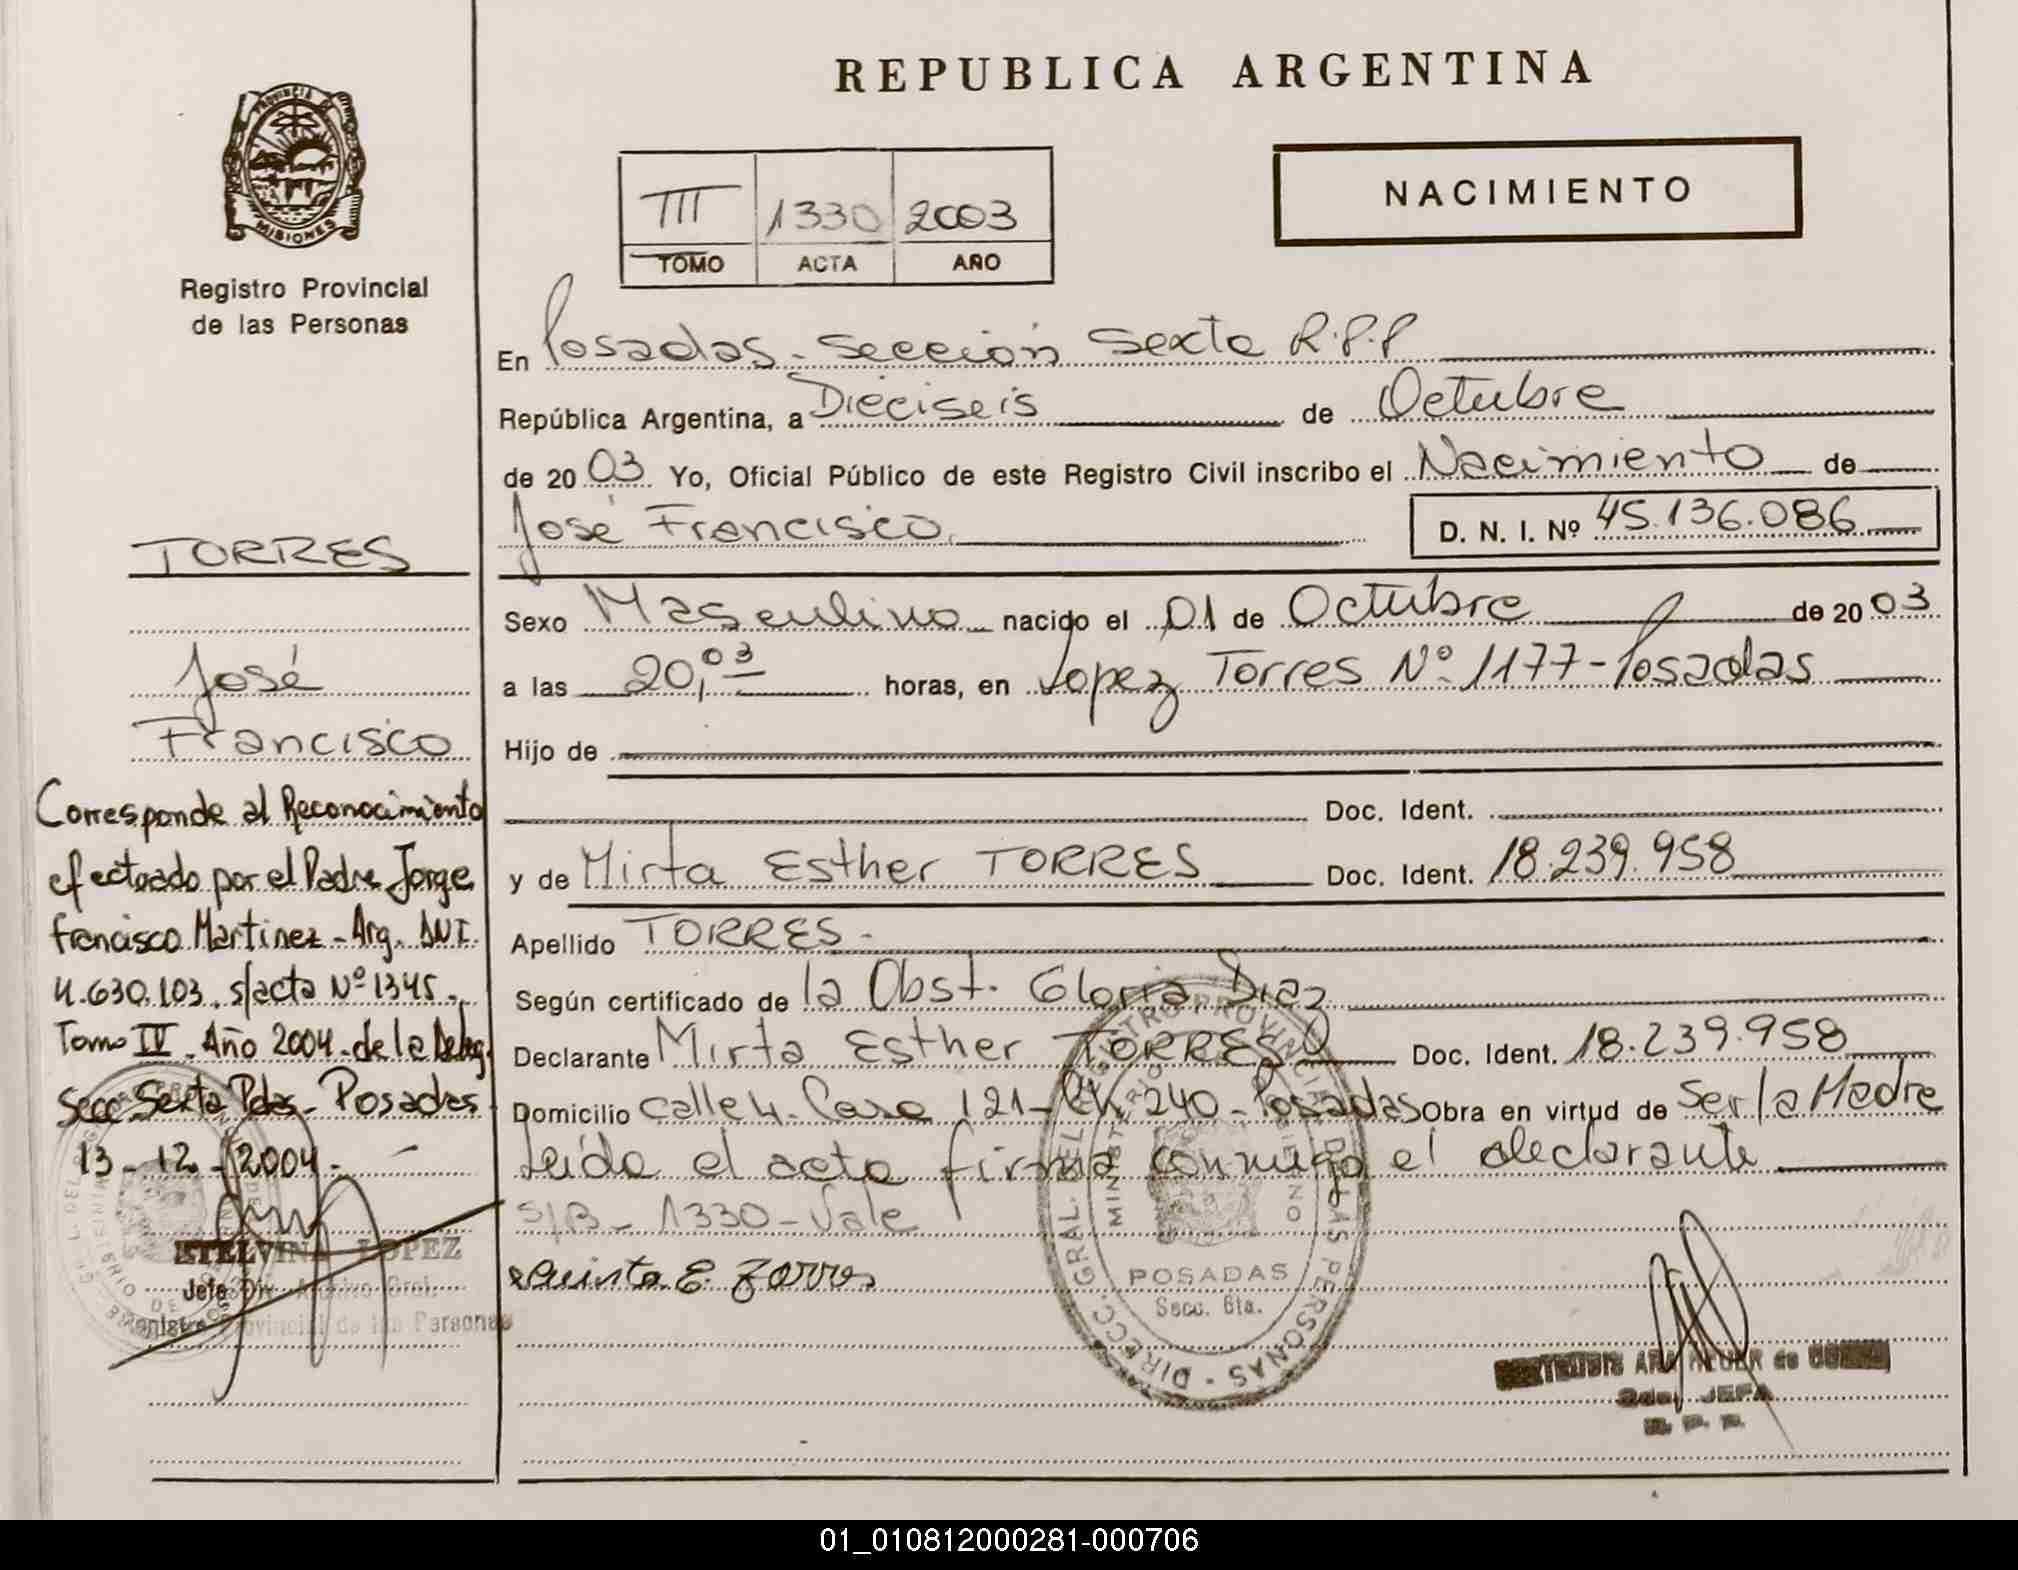 REPUBLICA ARGENTINA
PROVINCIA DE MISIONES
Registro Provincial
de las Personas
NACIMIENTO
III 1330 2003
TOMO ACTA AÑO
En Posadas - Sección Sexta R.P.P
República Argentina, a Dieciseis de Octubre
de 20 03 Yo, Oficial Público de este Registro Civil inscribo el Nacimiento de
José Francisco. D. N. I. Nº 45.136.086
TORRES
José
Francisco
Sexo Masculino nacido el 01 de Octubre de 20 03
a las 20,03 horas, en Lopez Torres Nº 1177 - Posadas
Hijo de
Doc. Ident.
y de Mirta Esther TORRES Doc. Ident. 18.239.958
Apellido TORRES -
Según certificado de la Obst. Gloria Diaz
Declarante Mirta Esther TORRES Doc. Ident. 18.239.958
Domicilio calle 4 - Casa 121 - Ch. 240 - Posadas Obra en virtud de Ser la Madre
Leída el acta firma conmigo el declarante
S/B - 1330 - Vale
E. Torres
Corresponde al Reconocimiento
efectuado por el Padre Jorge
Francisco Martinez - Arg. DNI.
4.630.103. s/acta Nº 1345.
Tomo IV - Año 2004 - de la Deleg.
Secc. Sexta Pdas - Posadas
13 - 12 - 2004 -
ESTELVINA LOPEZ
Jefe Div. Archivo Gral.
Registro Provincial de las Personas
DIRECC. GRAL. DEL REGISTRO PROVINCIAL DE LAS PERSONAS
MINISTERIO DE GOBIERNO
POSADAS
Secc. 6ta.
2da. JEFA
R. P. P.
01_010812000281-000706